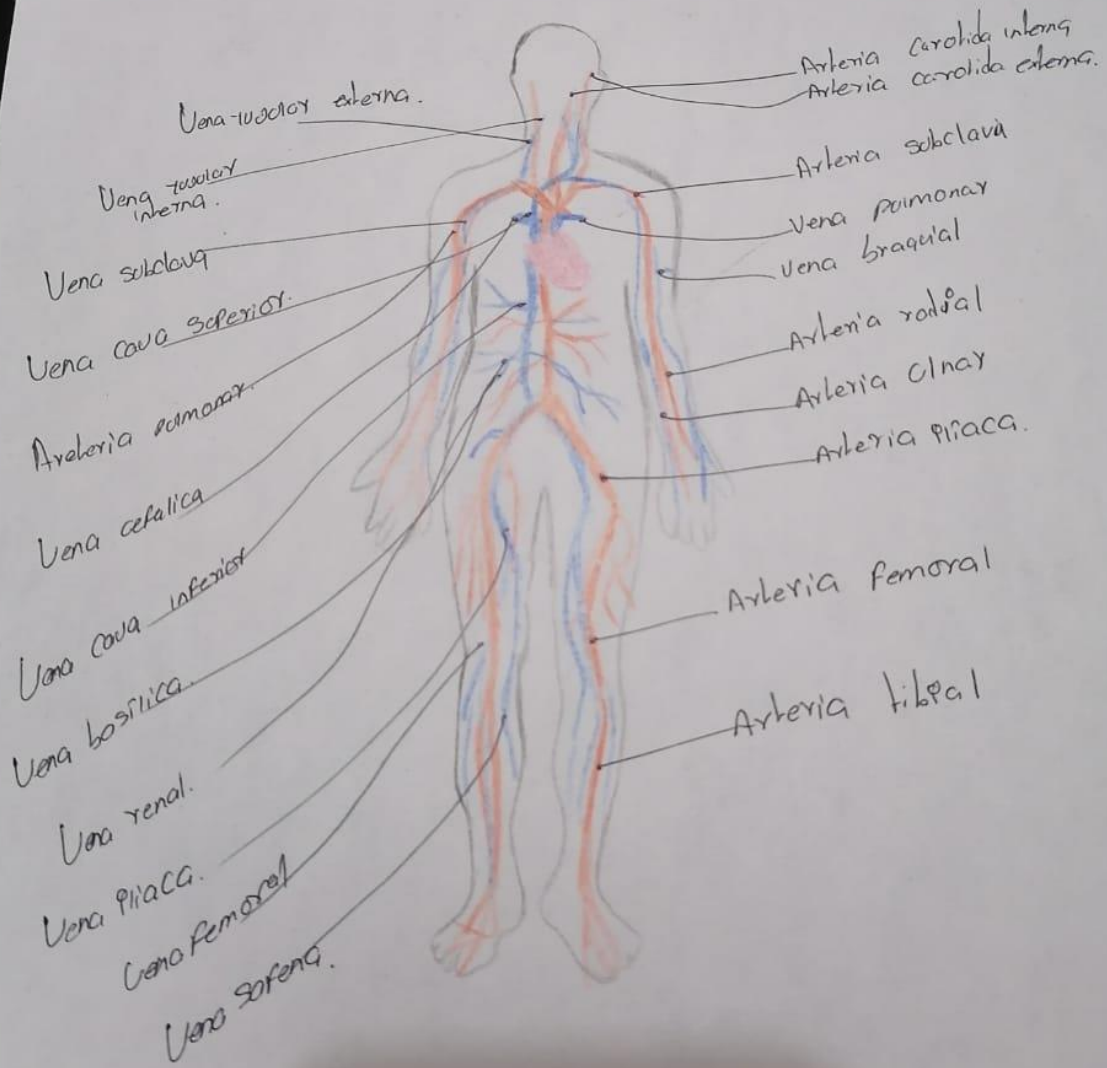 Vena yugolar externa.
Vena yugolar
interna.
Vena subclava
Vena cava superior.
Areteria pulmonar.
Vena cefalica
Vena cava inferior
Vena bosilica.
Vena renal.
Vena iliaca.
Vena femoral
Vena sofena.
Arteria carotida interna
Arteria carotida externa.
Arteria subclava
Vena pulmonar
Vena braquial
Arteria radial
Arteria Ulnar
Arteria iliaca.
Arteria femoral
Arteria tibial